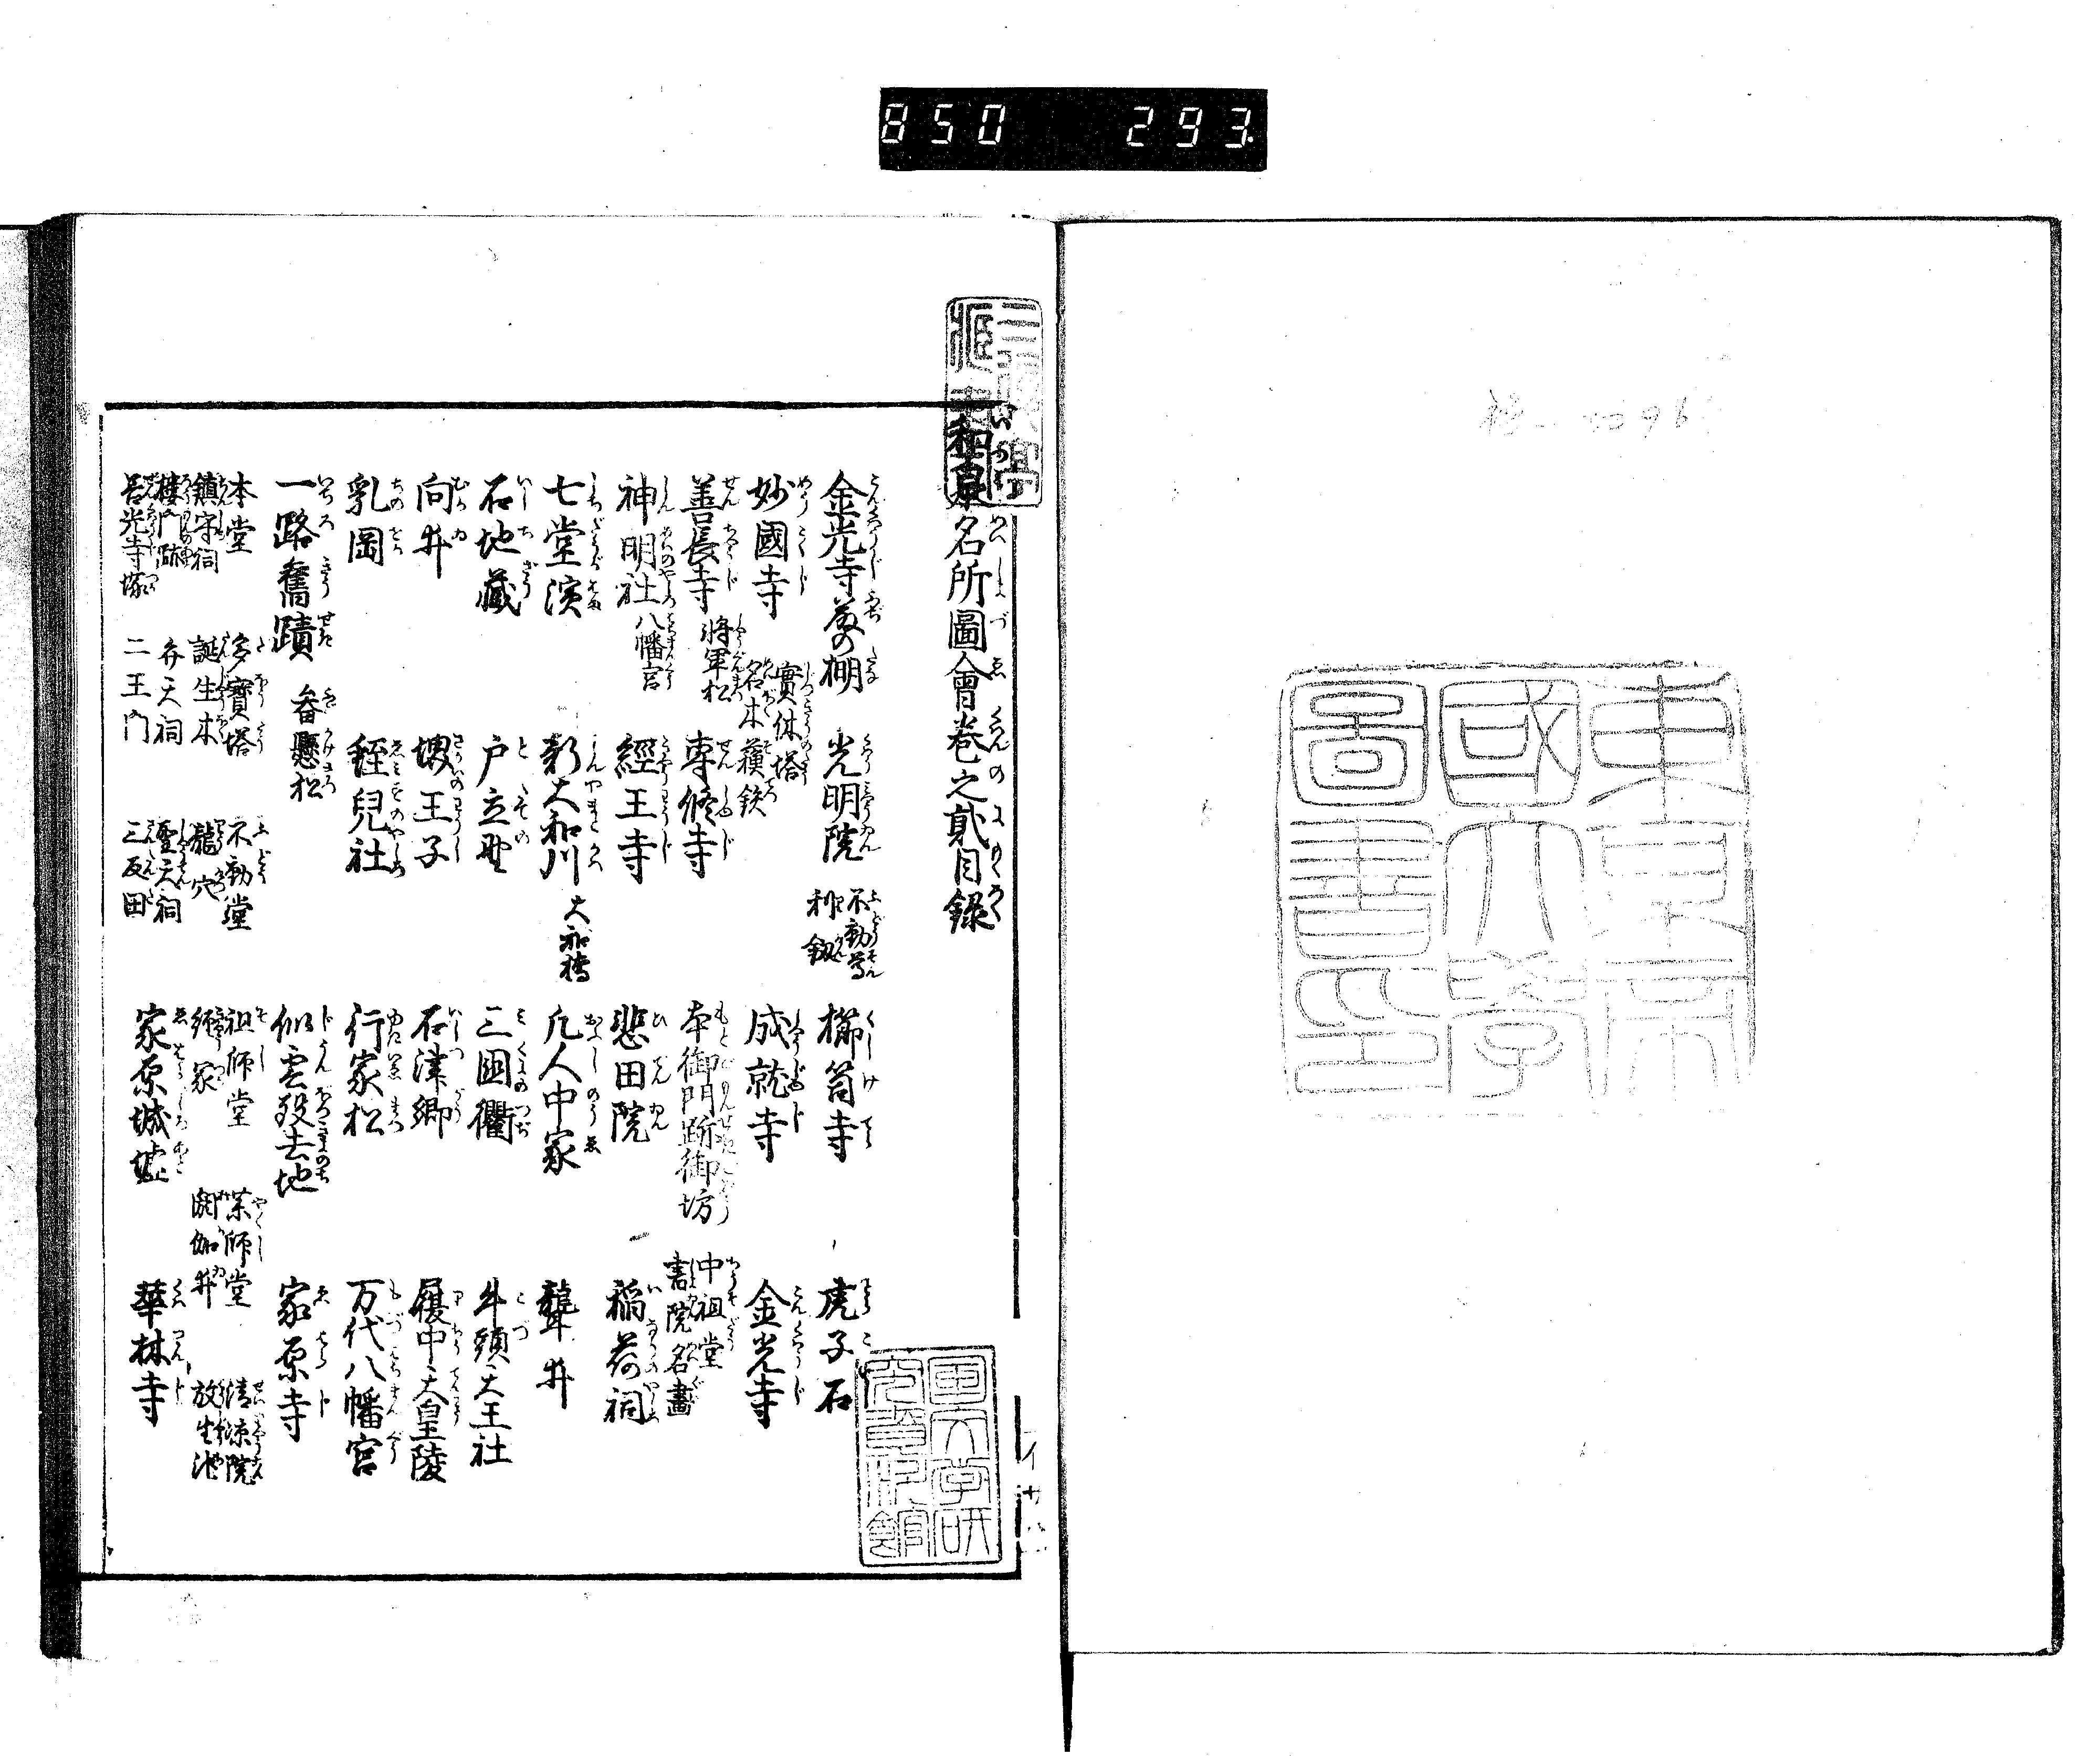 850 293
東京帝
國大學
圖書印
和泉名所圖會巻之貳目録
金光寺藤の棚 光明院 不動尊 利劔 櫛笥寺 虎子石
妙國寺 實休塔 名木蘓鉄 成就寺 金光寺
善長寺 将軍松 専修寺 本御門跡御坊 中祖堂 書院名畵
神明社 八幡宮 經王寺 悲田院 稲荷祠
七堂濱 新大和川 大和橋 九人中家 聾井
石地藏 戸立野 三國衢 牛頭天王社
向井 堺王子 石津郷 履中天皇陵
乳岡 蛭兒社 行家松 万代八幡宮
一路舊蹟 畚懸松 似雲殁去地 家原寺
本堂 多寶塔 不動堂 祖師堂 薬師堂 清凉院
鎮守祠 誕生木 龍穴 經冢 閼伽井 放生池
樓門跡 弁天祠 聖天祠
善光寺塚 二王門 三反田 家原城墟 華林寺